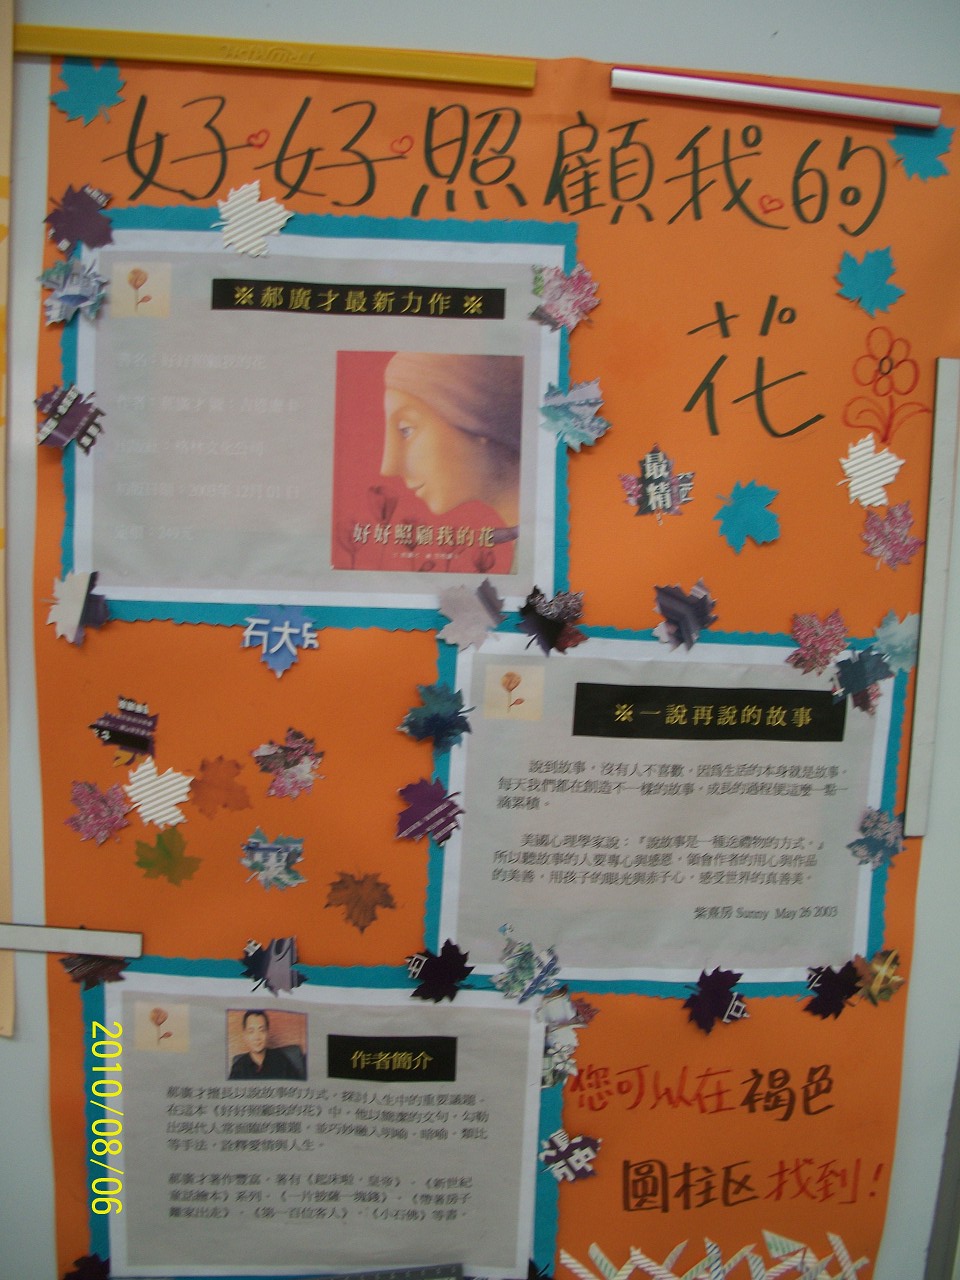 好好照顧我的
花
※郝廣才最新力作※
書名：好好照顧我的花
好好照顧我的花
最
精
石大
※一說再說的故事
說到故事，沒有人不喜歡，因為生活的本身就是故事，
每天我們都在創造不一樣的故事，成長的過程便這麼一點一
滴累積。
美國心理學家說：『說故事是一種送禮物的方式。』
所以聽故事的人要專心與感恩，領會作者的用心與作品
的美善，用孩子的眼光與赤子心，感受世界的真善美。
紫熹房 Sunny May 26 2003
作者簡介
郝廣才擅長以說故事的方式，探討人生中的重要議題。
在這本《好好照顧我的花》中，他以簡潔的文句，勾勒
出現代人常面臨的難題，並巧妙融入明喻、暗喻、類比
等手法，詮釋愛情與人生。
郝廣才著作豐富，著有《起床啦，皇帝》、《新世紀
童話繪本》系列、《一片披薩一塊錢》、《帶著房子
離家出走》、《第一百位客人》、《小石佛》等書。
您可以在褐色
圓柱区找到！
2010/08/06